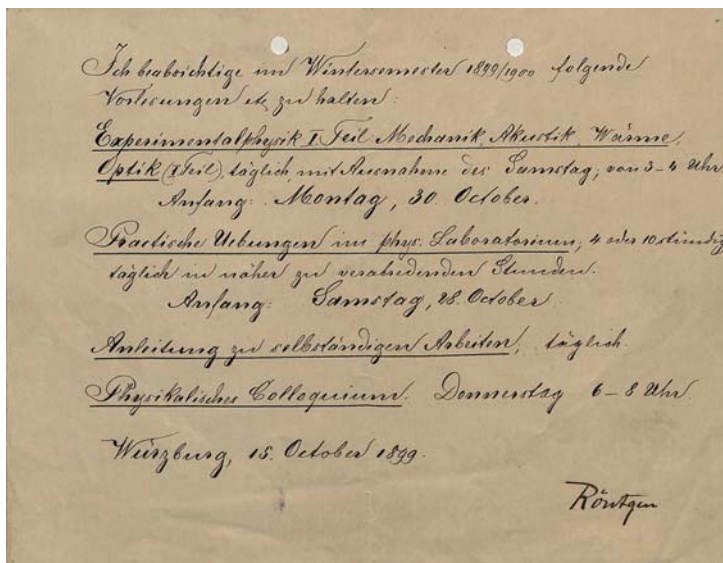 Ich beabsichtige im Wintersemester 1899/1900 folgende
Vorlesungen etc zu halten:
Experimentalphysik I. Teil: Mechanik, Akustik, Wärme,
Optik (I. Teil), täglich, mit Ausnahme des Samstag, von 3-4 Uhr.
Anfang: Montag, 30. October.
Practische Uebungen im phys. Laboratorium, 4 oder 10 stündig
täglich in näher zu verabredenden Stunden.
Anfang: Samstag, 28. October.
Anleitung zu selbständigen Arbeiten, täglich.
Physikalisches Colloquium. Donnerstag 6-8 Uhr.
Würzburg, 15. October 1899.
Röntgen